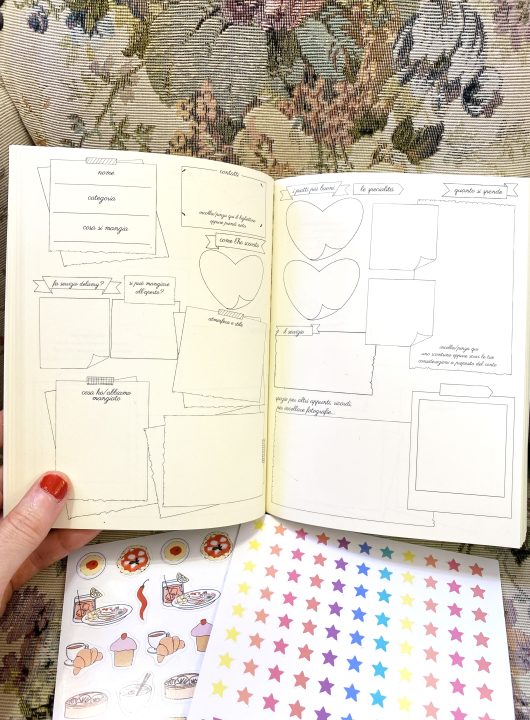 nome
categoria
cosa si mangia
contatti
incolla/pinza qui il biglietto
oppure prendi nota
come l'ho scovato
fa servizio delivery?
si può mangiare
all'aperto?
atmosfera e stile
cosa ho/abbiamo
mangiato
i piatti più buoni
le specialità
quanto si spende
incolla/pinza qui
uno scontrino oppure scrivi le tue
considerazioni a proposito del conto
il servizio
spazio per altri appunti, ricordi,
per incollare fotografie...